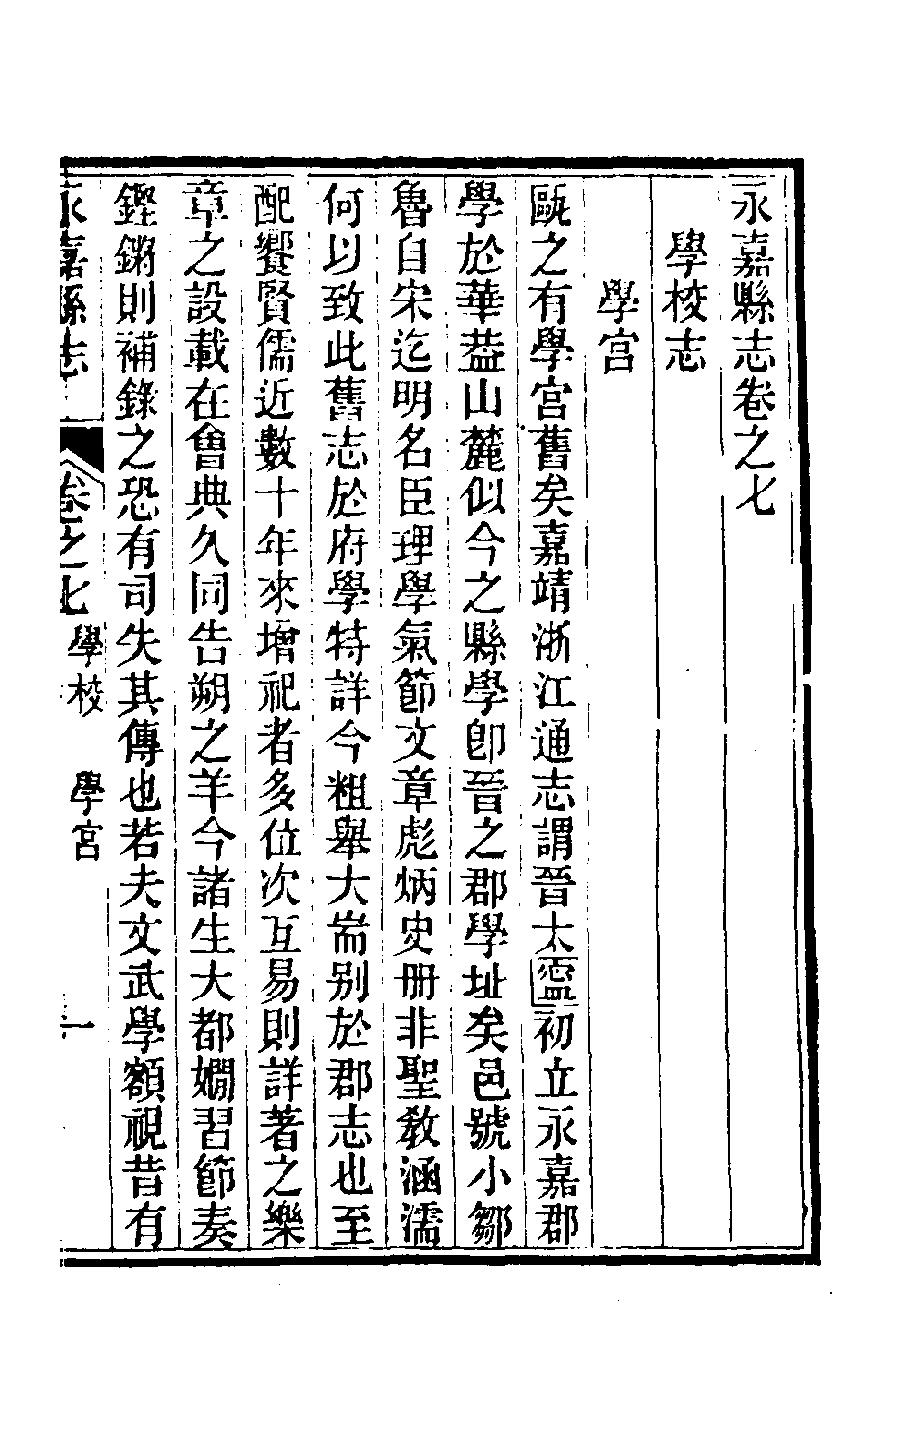 永嘉縣志卷之七
學校志
學宮
甌之有學宮舊矣嘉靖浙江通志謂晉太寍初立永嘉郡
學於華葢山麓似今之縣學卽晉之郡學址矣邑號小鄒
魯自宋迄明名臣理學氣節文章彪炳史冊非聖敎涵濡
何以致此舊志於府學特詳今粗舉大耑别於郡志也至
配饗賢儒近數十年來增祀者多位次互易則詳著之樂
章之設載在會典久同告朔之羊今諸生大都嫺習節奏
鏗鏘則補錄之恐有司失其傳也若夫文武學額視昔有
永嘉縣志 卷之七 學校 學宮 一